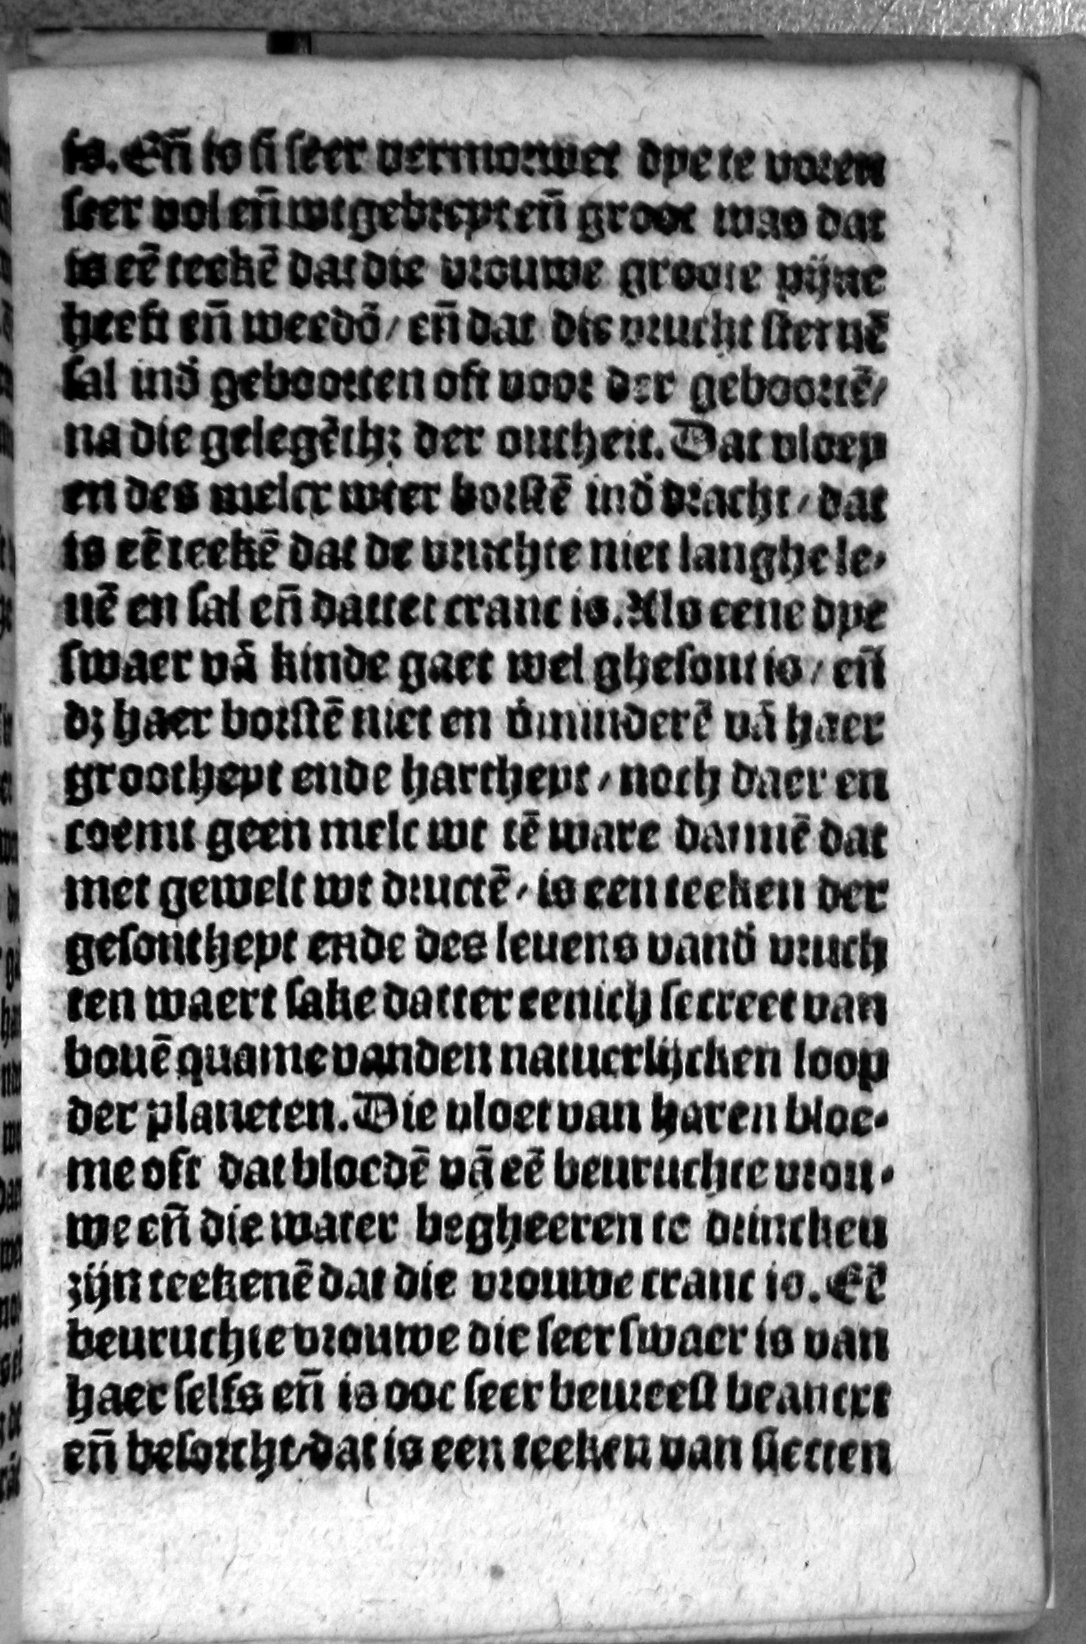 is. Eñ is si seer vermorwet dye te voren
seer vol eñ wtgebreyt eñ groot was dat
is eē teekē dat die vrouwe groote pijne
heeft eñ weedō / eñ dat die vrucht steruē
sal ind̄ geboorten oft voor der geboortē /
na die gelegēthꝫ der outheit. Dat vloey
en des melcx wter borstē ind̄ dracht / dat
is eē teekē dat de vruchte niet langhe le⸗
uē en sal eñ dattet cranc is. Als eene dye
swaer vā kinde gaet wel ghesont is / eñ
dꝫ haer borstē niet en v̄minderē vā haer
grootheyt ende hartheyt / noch daer en
coemt geen melc wt tē ware datmē dat
met gewelt wt dructē / is een teeken der
gesontheyt ende des leuens vand̄ vruch
ten waert sake datter eenich secreet van
bouē quame vanden natuerlijcken loop
der planeten. Die vloet van haren bloe⸗
me oft dat bloedē vā eē beuruchte vrou⸗
we eñ die water begheeren te drincken
zijn teekenē dat die vrouwe cranc is. Eē
beuruchte vrouwe die seer swaer is van
haer selfs eñ is ooc seer beureest beancxt
eñ besorcht / dat is een teeken van siecten